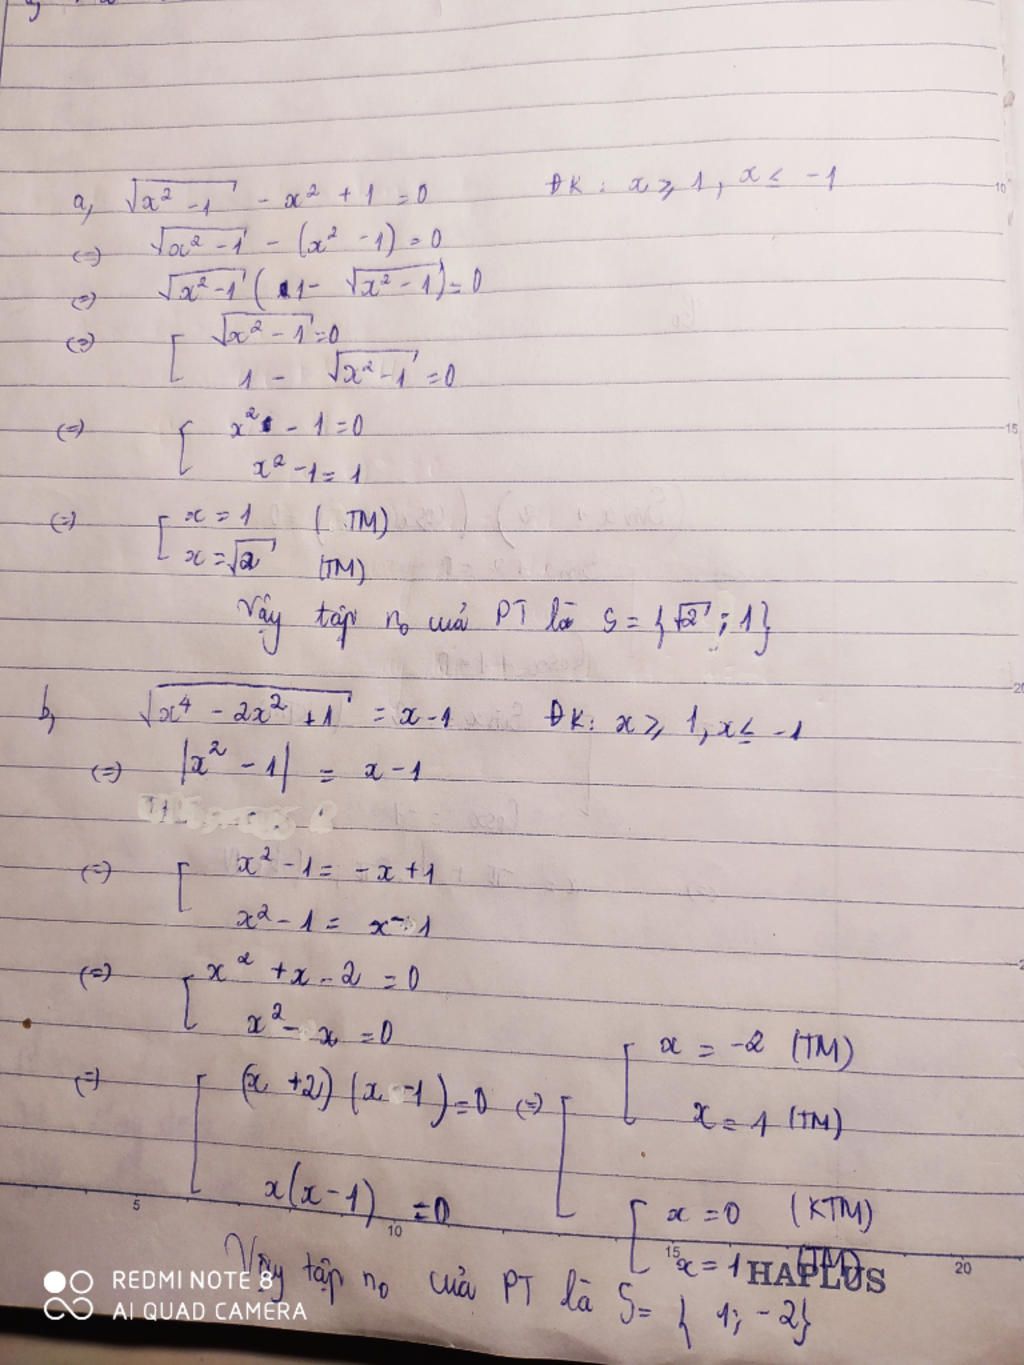 a, √(x² - 1) - x² + 1 = 0 ĐK: x ⩾ 1, x ≤ -1
(=) √(x² - 1) - (x² - 1) = 0
(=) √(x² - 1) (1 - √(x² - 1)) = 0
(=) [ √(x² - 1) = 0
1 - √(x² - 1) = 0
(=) [ x² - 1 = 0
x² - 1 = 1
(=) [ x = 1 (TM)
x = √2 (TM)
Vậy tập n₀ của PT là S = {√2; 1}
b, √(x⁴ - 2x² + 1) = x - 1 ĐK: x ⩾ 1, x ≤ -1
(=) |x² - 1| = x - 1
(=) [ x² - 1 = -x + 1
x² - 1 = x - 1
(=) [ x² + x - 2 = 0
x² - x = 0
(=) [ (x + 2)(x - 1) = 0 (=) [ [ x = -2 (TM)
x = 1 (TM)
x(x - 1) = 0 [ x = 0 (KTM)
x = 1 (TM)
Vậy tập n₀ của PT là S = {1; -2}
5 10 15 20
HAPLUS
10
15
REDMI NOTE 8
AI QUAD CAMERA